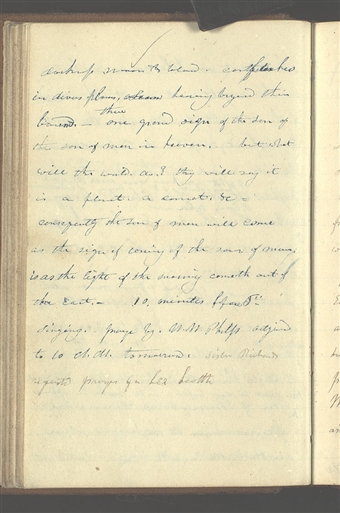 darkness moon to blood. earthquakes
in divers places, having beyond their
bound.— then one grand sign of the son of
the son of man in heaven. but what
will the world do? they will say it
is a planet. a comet. &c —
consequently the son of man will come
as the sign of coming of the son of man,
is as the light of the morning cometh out of
the East.— 10. minutes before 5
singing. prayer by. W. W. Phelps adjnd
to 10 tomorrow. Sister
requests prayers for her health